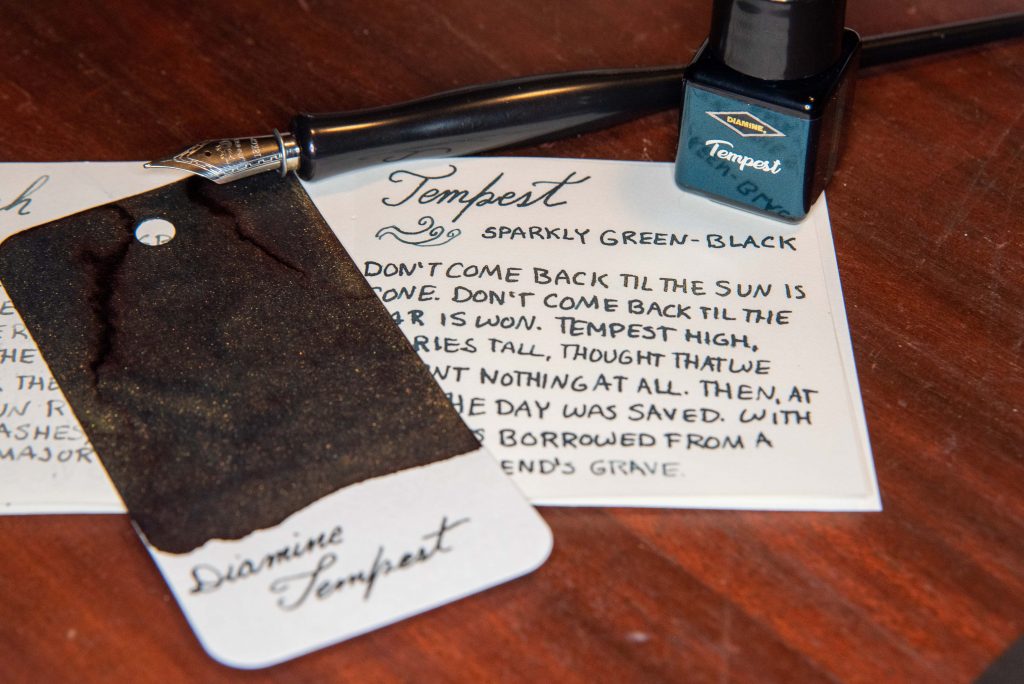 DIAMINE
Tempest
Tempest
SPARKLY GREEN-BLACK
DON'T COME BACK TIL THE SUN IS
GONE. DON'T COME BACK TIL THE
AR IS WON. TEMPEST HIGH,
RIES TALL, THOUGHT THAT WE
NT NOTHING AT ALL. THEN, AT
HE DAY WAS SAVED. WITH
S BORROWED FROM A
END'S GRAVE.
h
THE
UN R
ASHES,
MAJOR
Diamine
Tempest